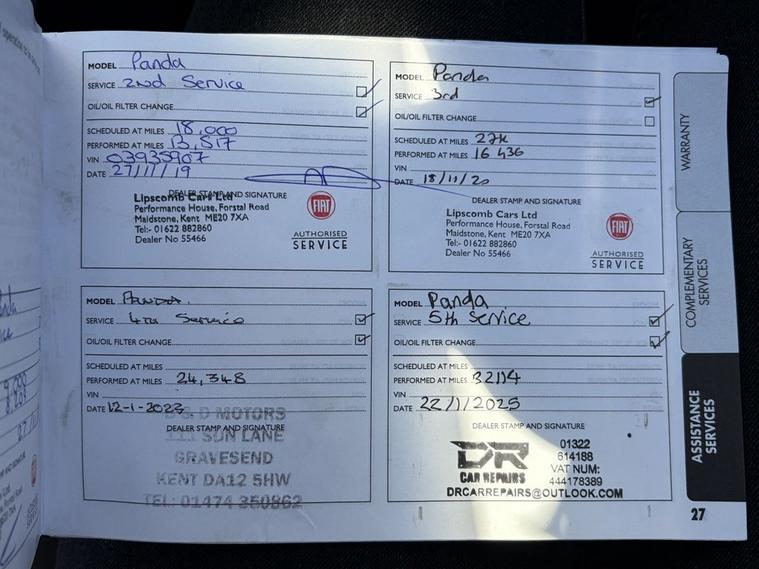 MODEL Panda
SERVICE 2nd Service
OIL/OIL FILTER CHANGE
SCHEDULED AT MILES 18,000
PERFORMED AT MILES 13,517
VIN 03935907
DATE 27/11/19
DEALER STAMP AND SIGNATURE
Lipscomb Cars Ltd
Performance House, Forstal Road
Maidstone, Kent ME20 7XA
Tel:- 01622 882860
Dealer No 55466
FIAT
AUTHORISED
SERVICE
MODEL Panda
SERVICE 3rd
OIL/OIL FILTER CHANGE
SCHEDULED AT MILES 27k
PERFORMED AT MILES 16 436
VIN
DATE 18/11/20
DEALER STAMP AND SIGNATURE
Lipscomb Cars Ltd
Performance House, Forstal Road
Maidstone, Kent ME20 7XA
Tel:- 01622 882860
Dealer No 55466
FIAT
AUTHORISED
SERVICE
MODEL PANDA.
SERVICE 4TH Service
OIL/OIL FILTER CHANGE
SCHEDULED AT MILES
PERFORMED AT MILES 24,348
VIN
DATE 12-1-2023
D MOTORS
DEALER STAMP AND SIGNATURE
111 SUN LANE
GRAVESEND
KENT DA12 5HW
TEL: 01474 350862
MODEL Panda
SERVICE 5th Service
OIL/OIL FILTER CHANGE
SCHEDULED AT MILES
PERFORMED AT MILES 32114
VIN
DATE 22/1/2025
DEALER STAMP AND SIGNATURE
DR
CAR REPAIRS
01322
614188
VAT NUM:
444178389
DRCARREPAIRS@OUTLOOK.COM
WARRANTY
COMPLEMENTARY
SERVICES
ASSISTANCE
SERVICES
27